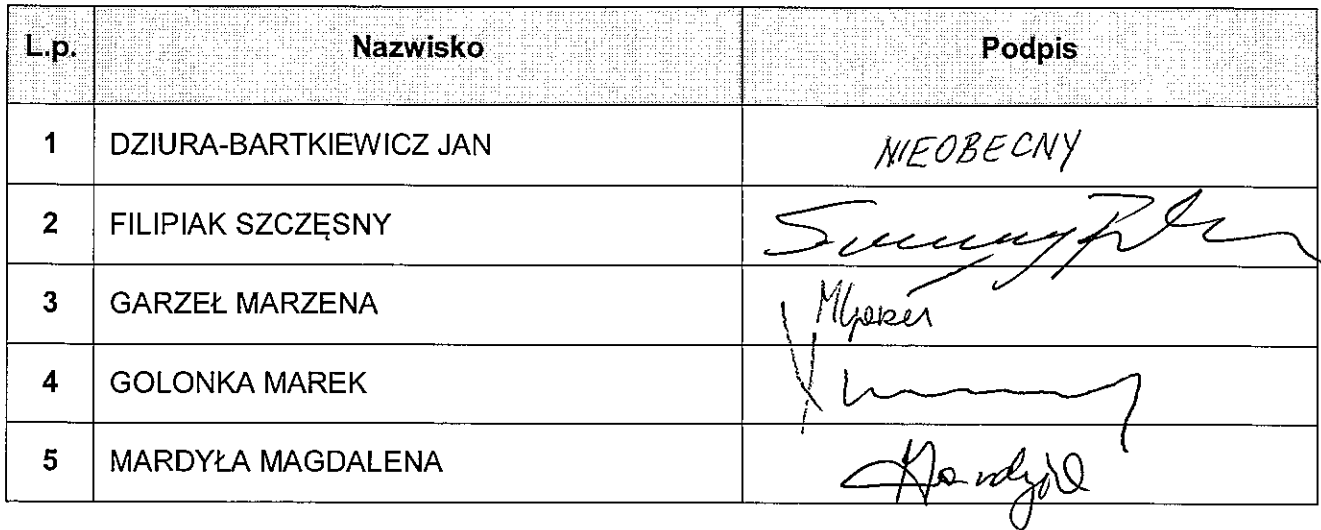 L.p. Nazwisko Podpis
1 DZIURA-BARTKIEWICZ JAN NIEOBECNY
2 FILIPIAK SZCZĘSNY
3 GARZEŁ MARZENA
4 GOLONKA MAREK
5 MARDYŁA MAGDALENA